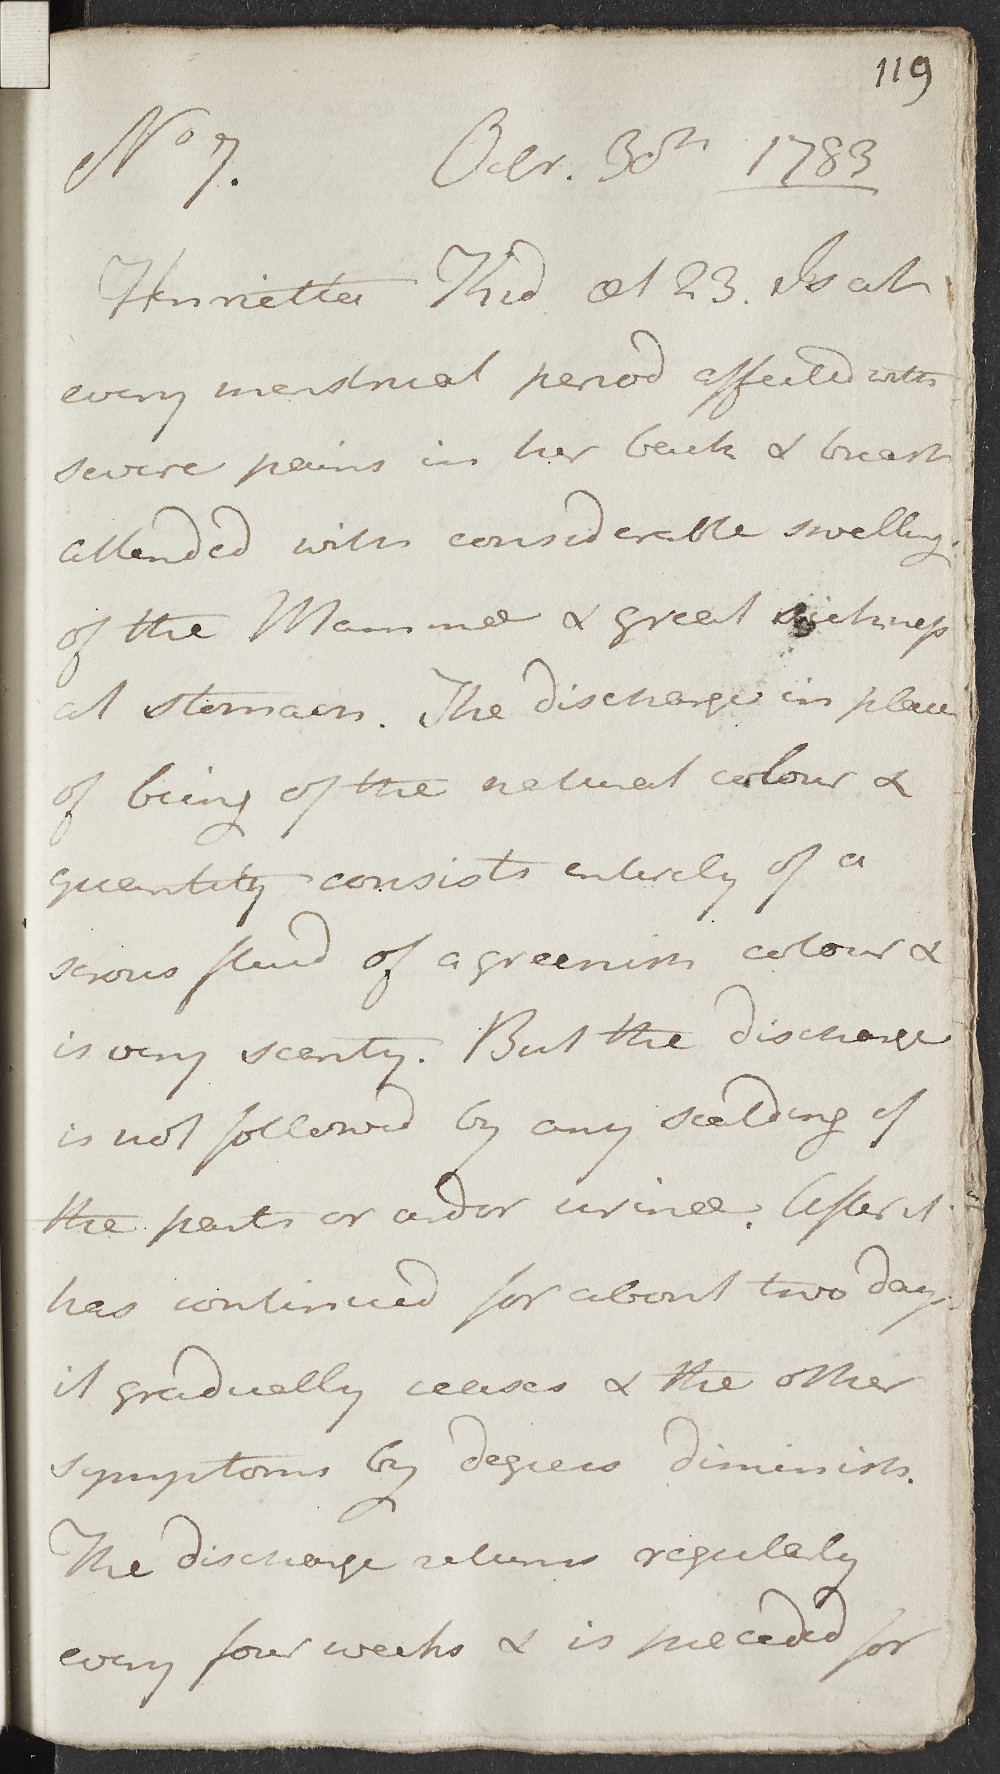 119
No 7. Octr. 30th 1783
Henrietta Kid æt 23. Is at
every menstrual period affected with
severe pains in her back & breast
attended with considerable swelling
of the Mammæ & great sickness
at stomach. The discharge in place
of being of the natural colour &
quantity consists entirely of a
serous fluid of a greenish colour &
is very scanty. But the discharge
is not followed by any scalding of
the parts or ardor urinæ. After it
has continued for about two days
it gradually ceases & the other
symptoms by degrees diminish.
The discharge returns regularly
every four weeks & is preceded for